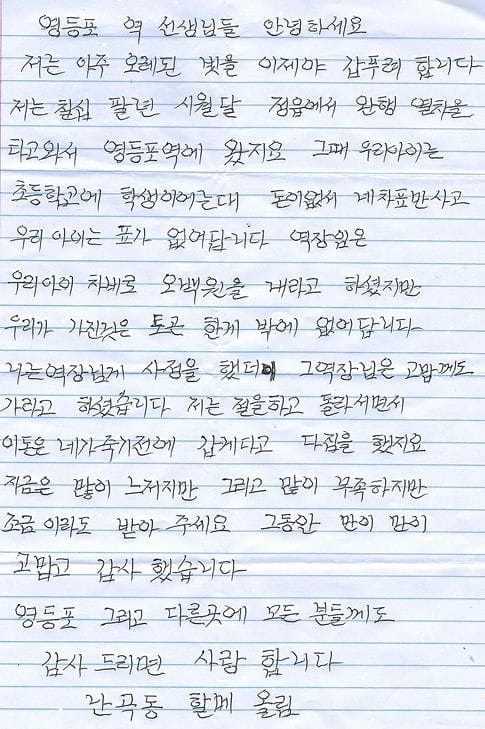 영등포 역 선생님들 안녕하세요
저는 아주 오레된 빗을 이제야 갑푸려 합니다
저는 칠십 팔련 시월달 정읍에서 완행 열차을
타고와서 영등포역에 왔지요 그때 우리아이는
초등학교에 학생이어는대 돈이없서 네차표만사고
우리 아이는 표가 없어답니다 역장임은
우리아이 차비로 오백원을 내라고 하셨지만
우리가 가진것은 토큰 한게 밖에 없어답니다
나는역장님게 사정을 했더니 그역장님은 고맙께도
가라고 하셨습니다 저는 절을하고 돌라서면서
이돈은 네가죽기전에 갑게다고 다짐을 했지요
지금은 많이 느저지만 그리고 많이 부족하지만
조금 이라도 받아 주세요 그동안 만이 만이
고맙고 감사 했습니다
영등포 그리고 다른곳에 모든 분들께도
감사 드리면 사람 합니다
난곡동 할메 올림